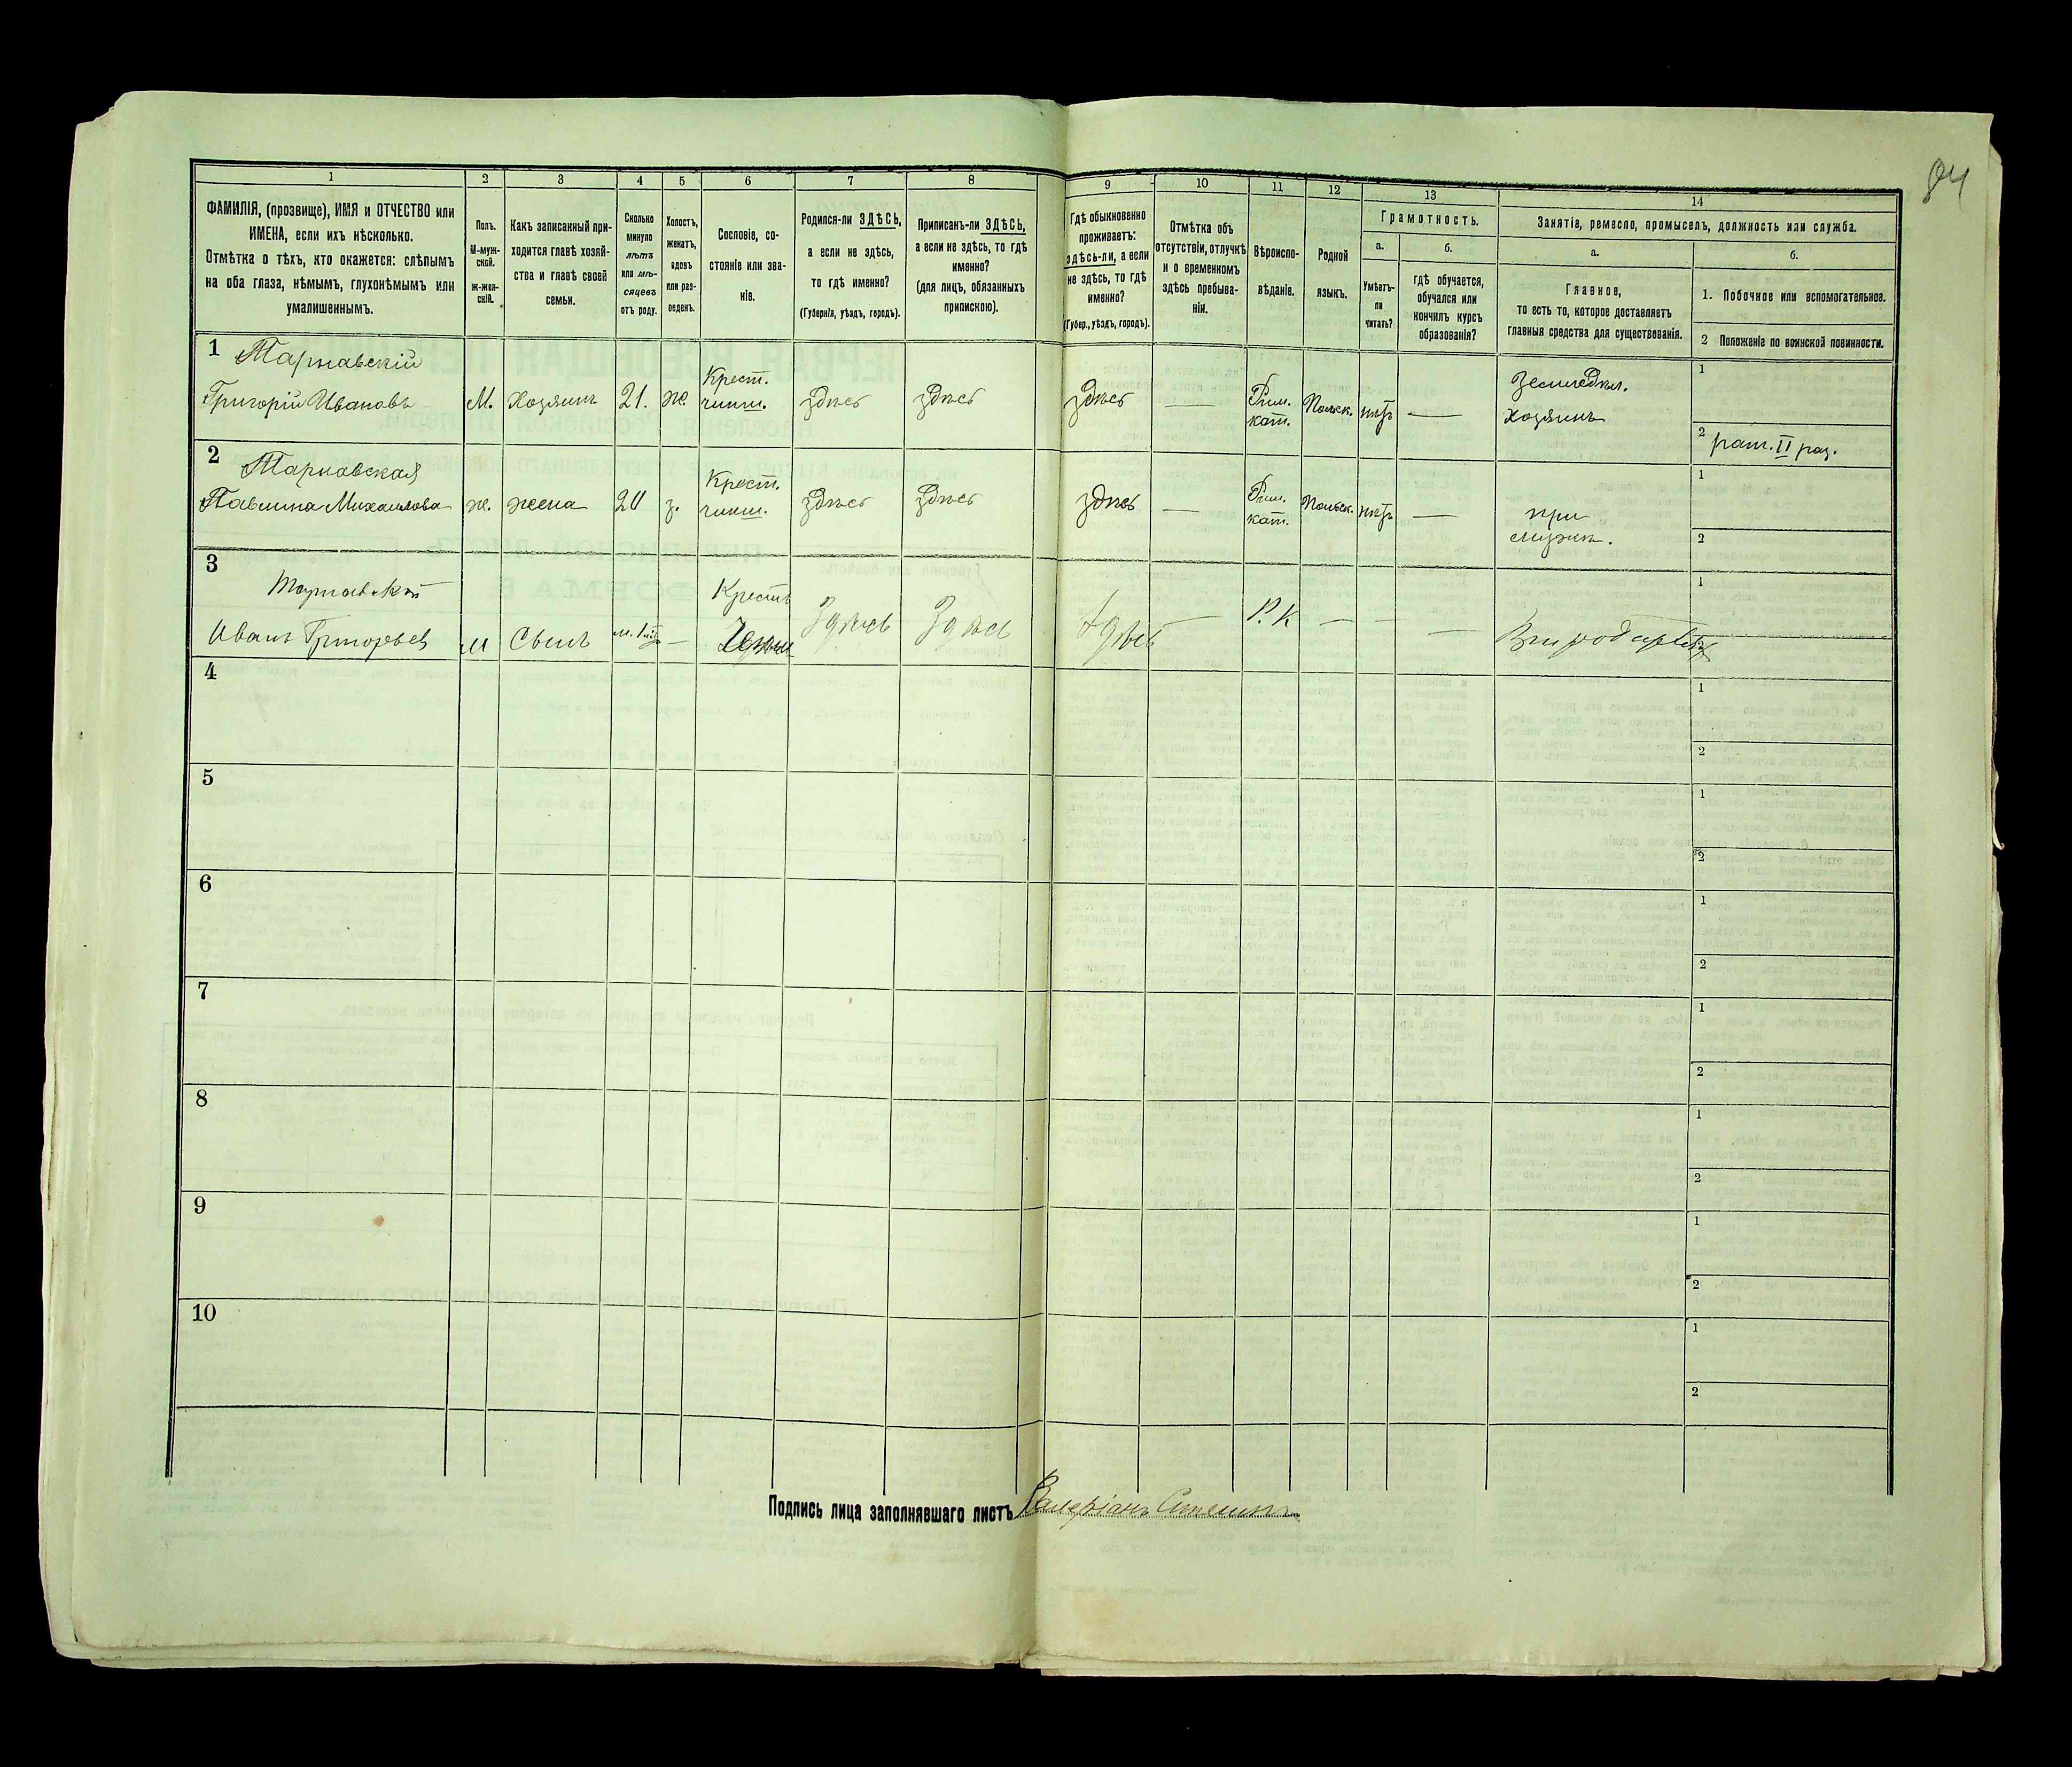 84
1
2
3
4
5
6
7
8
9
10
11
12
13
14
ФАМИЛІЯ, (прозвище), ИМЯ и ОТЧЕСТВО или
ИМЕНА, если ихъ нѣсколько.
Отмѣтка о тѣхъ, кто окажется: слѣпымъ
на оба глаза, нѣмымъ, глухонѣмымъ или
умалишеннымъ.
Полъ.
М-муж-
ской.
ж-жен-
скій.
Какъ записанный при-
ходится главѣ хозяй-
ства и главѣ своей
семьи.
Сколько
минуло
лѣтъ
или мѣ-
сяцевъ
отъ роду.
Холостъ,
женатъ,
вдовъ
или раз-
веденъ.
Сословіе, со-
стояніе или зва-
ніе.
Родился-ли ЗДѢСЬ,
а если не здѣсь,
то гдѣ именно?
(Губернія, уѣздъ, городъ).
Приписанъ-ли ЗДѢСЬ,
а если не здѣсь, то гдѣ
именно?
(для лицъ, обязанныхъ
припискою).
Гдѣ обыкновенно
проживаетъ:
здѣсь-ли, а если
не здѣсь, то гдѣ
именно?
(Губер., уѣздъ, городъ).
Отмѣтка объ
отсутствіи, отлучкѣ
и о временномъ
здѣсь пребыва-
ніи.
Вѣроиспо-
вѣданіе.
Родной
языкъ.
Грамотность.
а.
Умѣетъ-
ли
читать?
б.
гдѣ обучается,
обучался или
кончилъ курсъ
образованія?
Занятіе, ремесло, промыселъ, должность или служба.
а.
Главное,
то есть то, которое доставляетъ
главныя средства для существованія.
б.
1. Побочное или вспомогательное.
2 Положеніе по воинской повинности.
1 Тарнавскій
Григорій Ивановъ М. Хозяинъ 21. ж. Крест. здѣсь здѣсь здѣсь — Рим. кат. Польск. нѣтъ — Земледѣл. хозяинъ
1
2 рат. II раз.
2 Тарнавская
Павлина Михаилова ж. жена 20 з. Крест. здѣсь здѣсь здѣсь — Рим. кат. Польск. нѣтъ — при мужѣ.
1
2
3 Тарнавскій
Иванъ Григорьевъ М Сынъ — Крестъ здѣсь здѣсь здѣсь — Р. К — — —
1
4
1
2
5
1
2
6
1
2
7
1
2
8
1
2
9
1
2
10
1
2
Подпись лица заполнявшаго листъ Валеріанъ